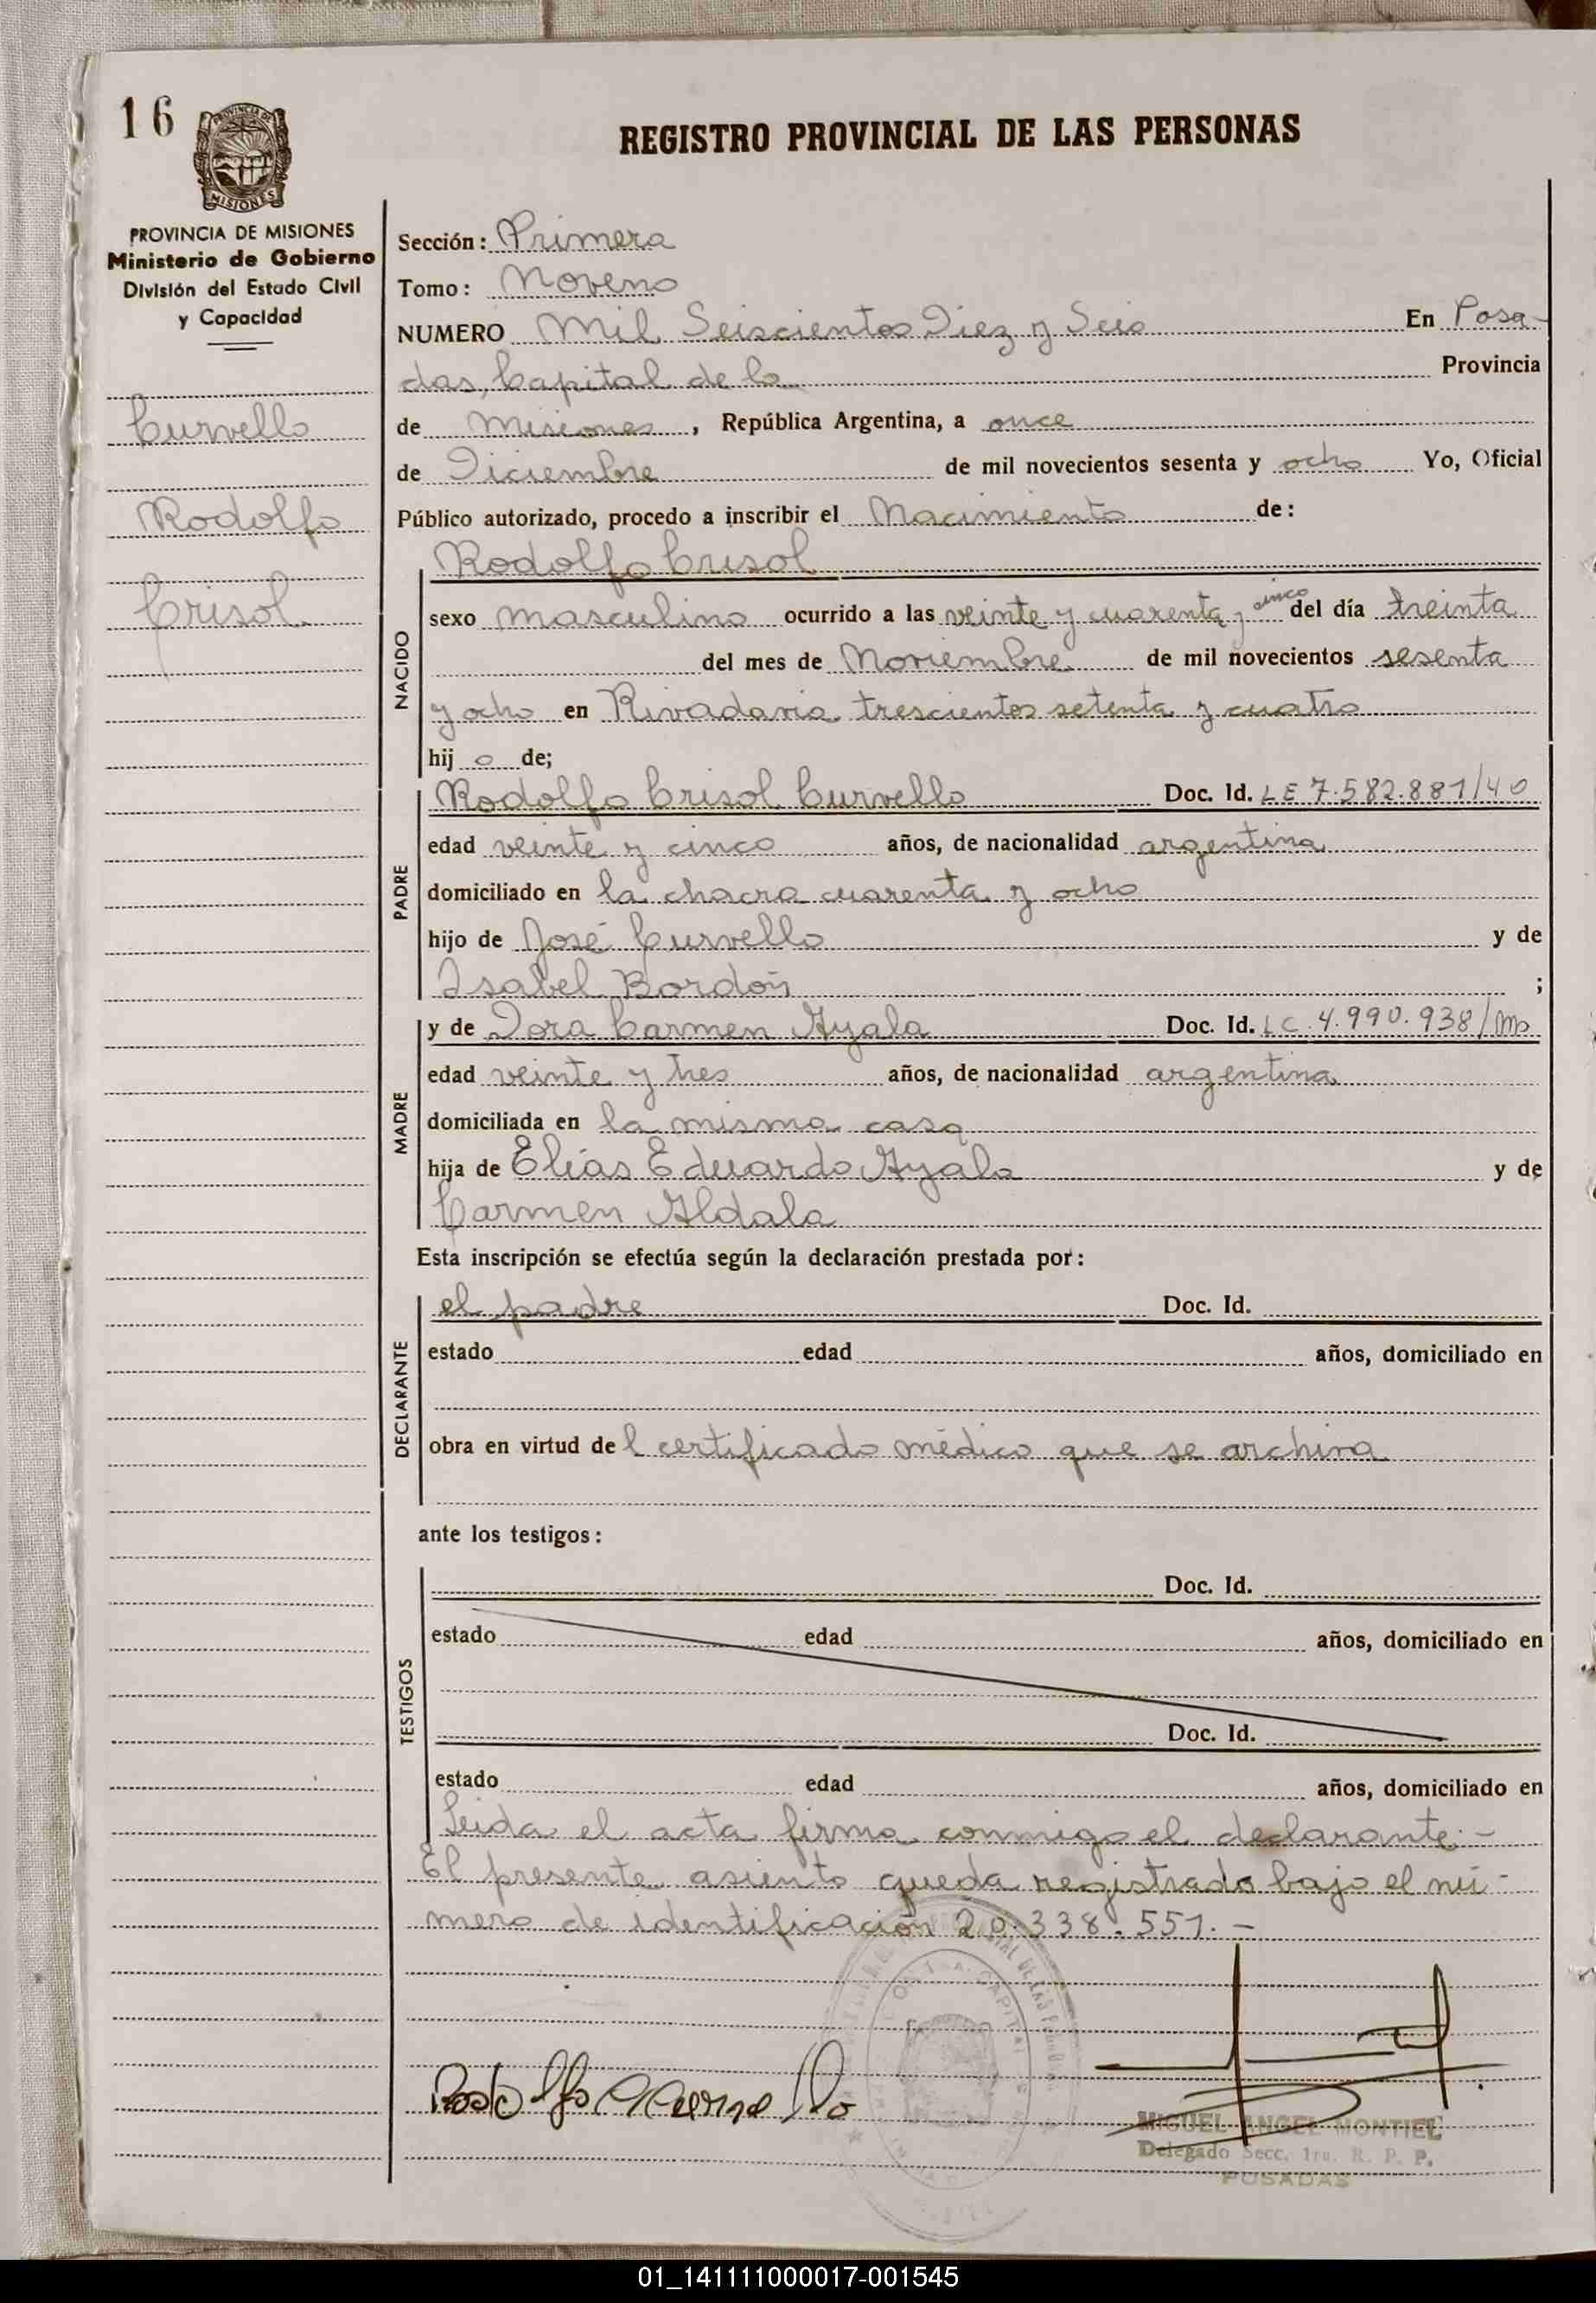 16
PROVINCIA DE MISIONES
REGISTRO PROVINCIAL DE LAS PERSONAS
PROVINCIA DE MISIONES
Ministerio de Gobierno
División del Estado Civil
y Capacidad
Curvello
Rodolfo
Crisol.
Sección: Primera
Tomo: Noveno
NUMERO Mil Seiscientos Diez y Seis En Posa-
das, Capital de la Provincia
de Misiones, República Argentina, a once
de Diciembre de mil novecientos sesenta y ocho Yo, Oficial
Público autorizado, procedo a inscribir el Nacimiento de:
NACIDO
Rodolfo Crisol
sexo masculino ocurrido a las veinte y cuarenta y cinco del día treinta
del mes de Noviembre de mil novecientos sesenta
y ocho en Rivadavia trescientos setenta y cuatro
hijo de;
PADRE
Rodolfo Crisol Curvello Doc. Id. LE 7.582.881/40
edad veinte y cinco años, de nacionalidad argentina
domiciliado en la chacra cuarenta y ocho
hijo de José Curvello y de
Isabel Bordón ;
MADRE
y de Dora Carmen Ayala Doc. Id. LC 4.990.938/Ms
edad veinte y tres años, de nacionalidad argentina
domiciliada en la misma casa
hija de Elías Eduardo Ayala y de
Carmen Aldala
Esta inscripción se efectúa según la declaración prestada por:
DECLARANTE
el padre Doc. Id.
estado edad años, domiciliado en
obra en virtud del certificado médico que se archiva
ante los testigos:
TESTIGOS
Doc. Id.
estado edad años, domiciliado en
Doc. Id.
estado edad años, domiciliado en
Leida el acta firma conmigo el declarante.-
El presente asiento queda registrado bajo el nú-
mero de identificación 20.338.551.-
Rodolfo C Curvello
MIGUEL ANGEL MONTIEL
Delegado Secc. 1ra. R. P. P.
POSADAS
01_141111000017-001545